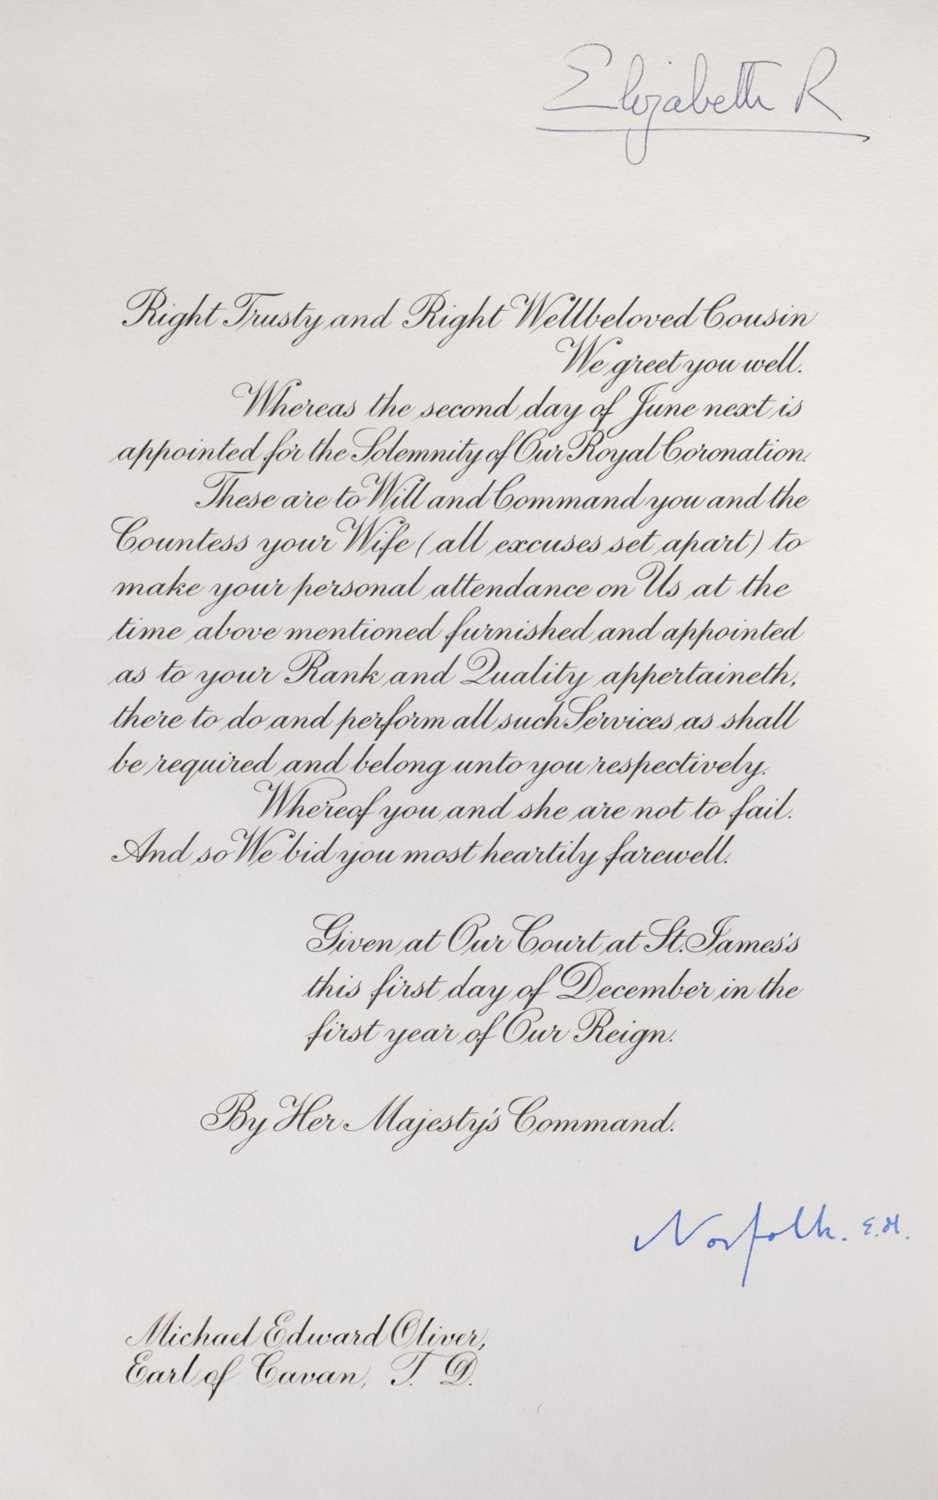 Elizabeth R
Right Trusty and Right Wellbeloved Cousin
We greet you well.
Whereas the second day of June next is
appointed for the Solemnity of Our Royal Coronation.
These are to Will and Command you and the
Countess your Wife (all excuses set apart) to
make your personal attendance on Us at the
time above mentioned furnished and appointed
as to your Rank and Quality appertaineth,
there to do and perform all such Services as shall
be required and belong unto you respectively.
Whereof you and she are not to fail.
And so We bid you most heartily farewell.
Given at Our Court at St. James's
this first day of December in the
first year of Our Reign.
By Her Majesty's Command.
Norfolk. E.M.
Michael Edward Oliver,
Earl of Cavan, T. D.